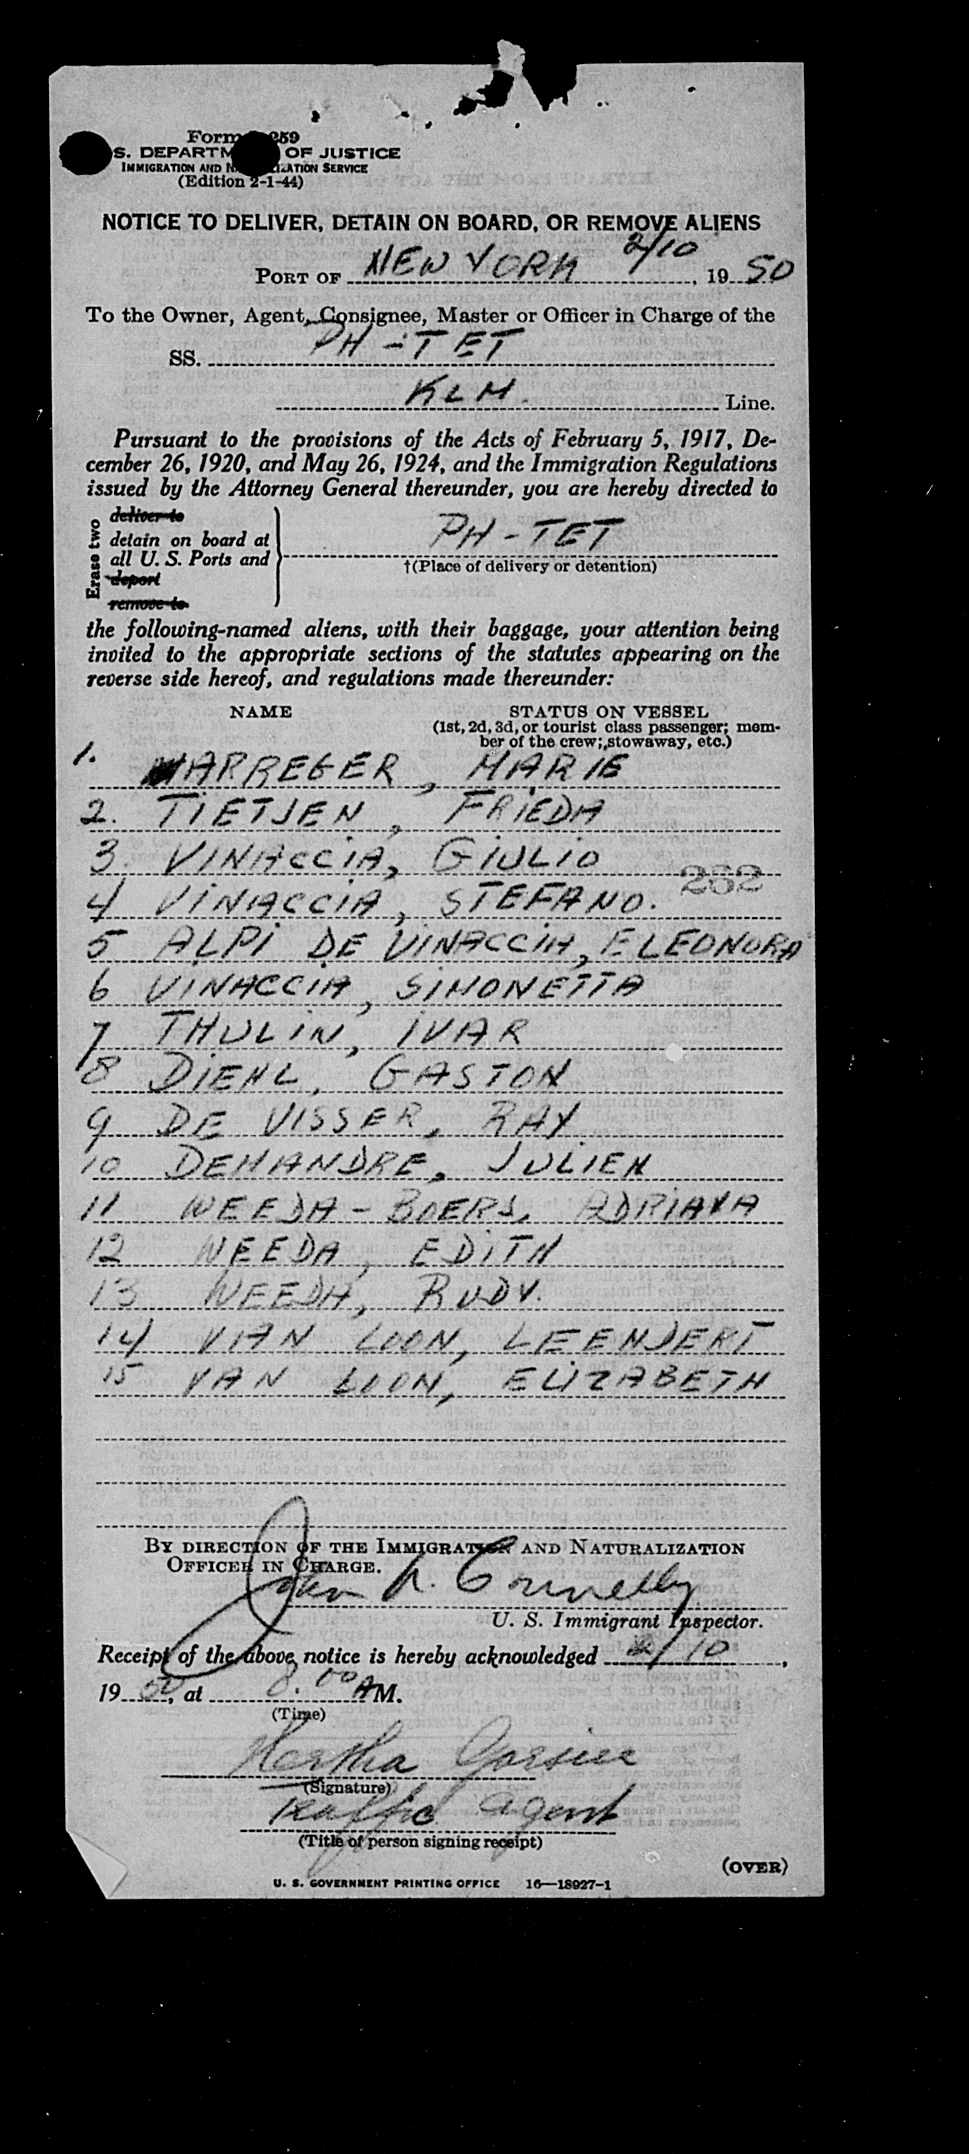 Form 259
S. DEPARTM OF JUSTICE
IMMIGRATION AND N IZATION SERVICE
(Edition 2-1-44)
NOTICE TO DELIVER, DETAIN ON BOARD, OR REMOVE ALIENS
PORT OF NEW YORK 2/10, 1950
To the Owner, Agent, Consignee, Master or Officer in Charge of the
SS. PH-TET
KLM. Line.
Pursuant to the provisions of the Acts of February 5, 1917, De-
cember 26, 1920, and May 26, 1924, and the Immigration Regulations
issued by the Attorney General thereunder, you are hereby directed to
Erase two
deliver to
detain on board at
all U. S. Ports and
deport
remove to
PH-TET
†(Place of delivery or detention)
the following-named aliens, with their baggage, your attention being
invited to the appropriate sections of the statutes appearing on the
reverse side hereof, and regulations made thereunder:
NAME STATUS ON VESSEL
(1st, 2d, 3d, or tourist class passenger; mem-
ber of the crew; stowaway, etc.)
1. HARREGER, MARIE
2. TIETJEN, FRIEDA
3. VINACCIA, GIULIO
262
4 VINACCIA, STEFANO.
5 ALPI DE VINACCIA, ELEONORA
6 VINACCIA, SIMONETTA
7 THULIN, IVAR
8 DIEHL, GASTON
9 DE VISSER, RAY
10 DEMANDRE, JULIEN
11 WEEDA-BOERS, ADRIANA
12 WEEDA, EDITH
13 WEEDA, RUDY.
14 VAN LOON, LEENDERT
15 VAN LOON, ELIZABETH
BY DIRECTION OF THE IMMIGRATION AND NATURALIZATION
OFFICER IN CHARGE.
John A. Connelly
U. S. Immigrant Inspector.
Receipt of the above notice is hereby acknowledged 2/10,
1950, at 8.00 AM.
(Time)
Hertha
(Signature)
Traffic agent
(Title of person signing receipt)
(OVER)
U. S. GOVERNMENT PRINTING OFFICE 16—18927-1